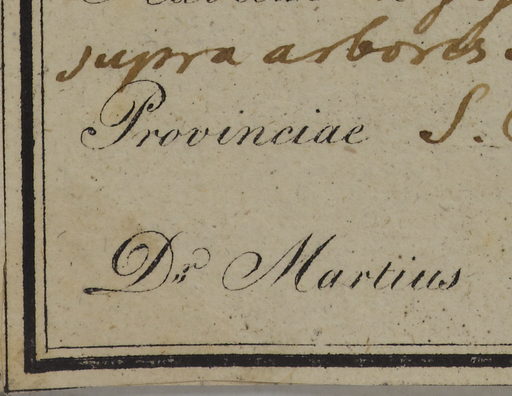 supra arbores
Provinciae S.
Dr Martius